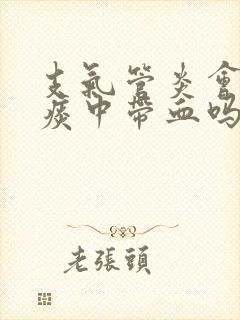 支氣管炎會
痰中帶血吗
老張頭